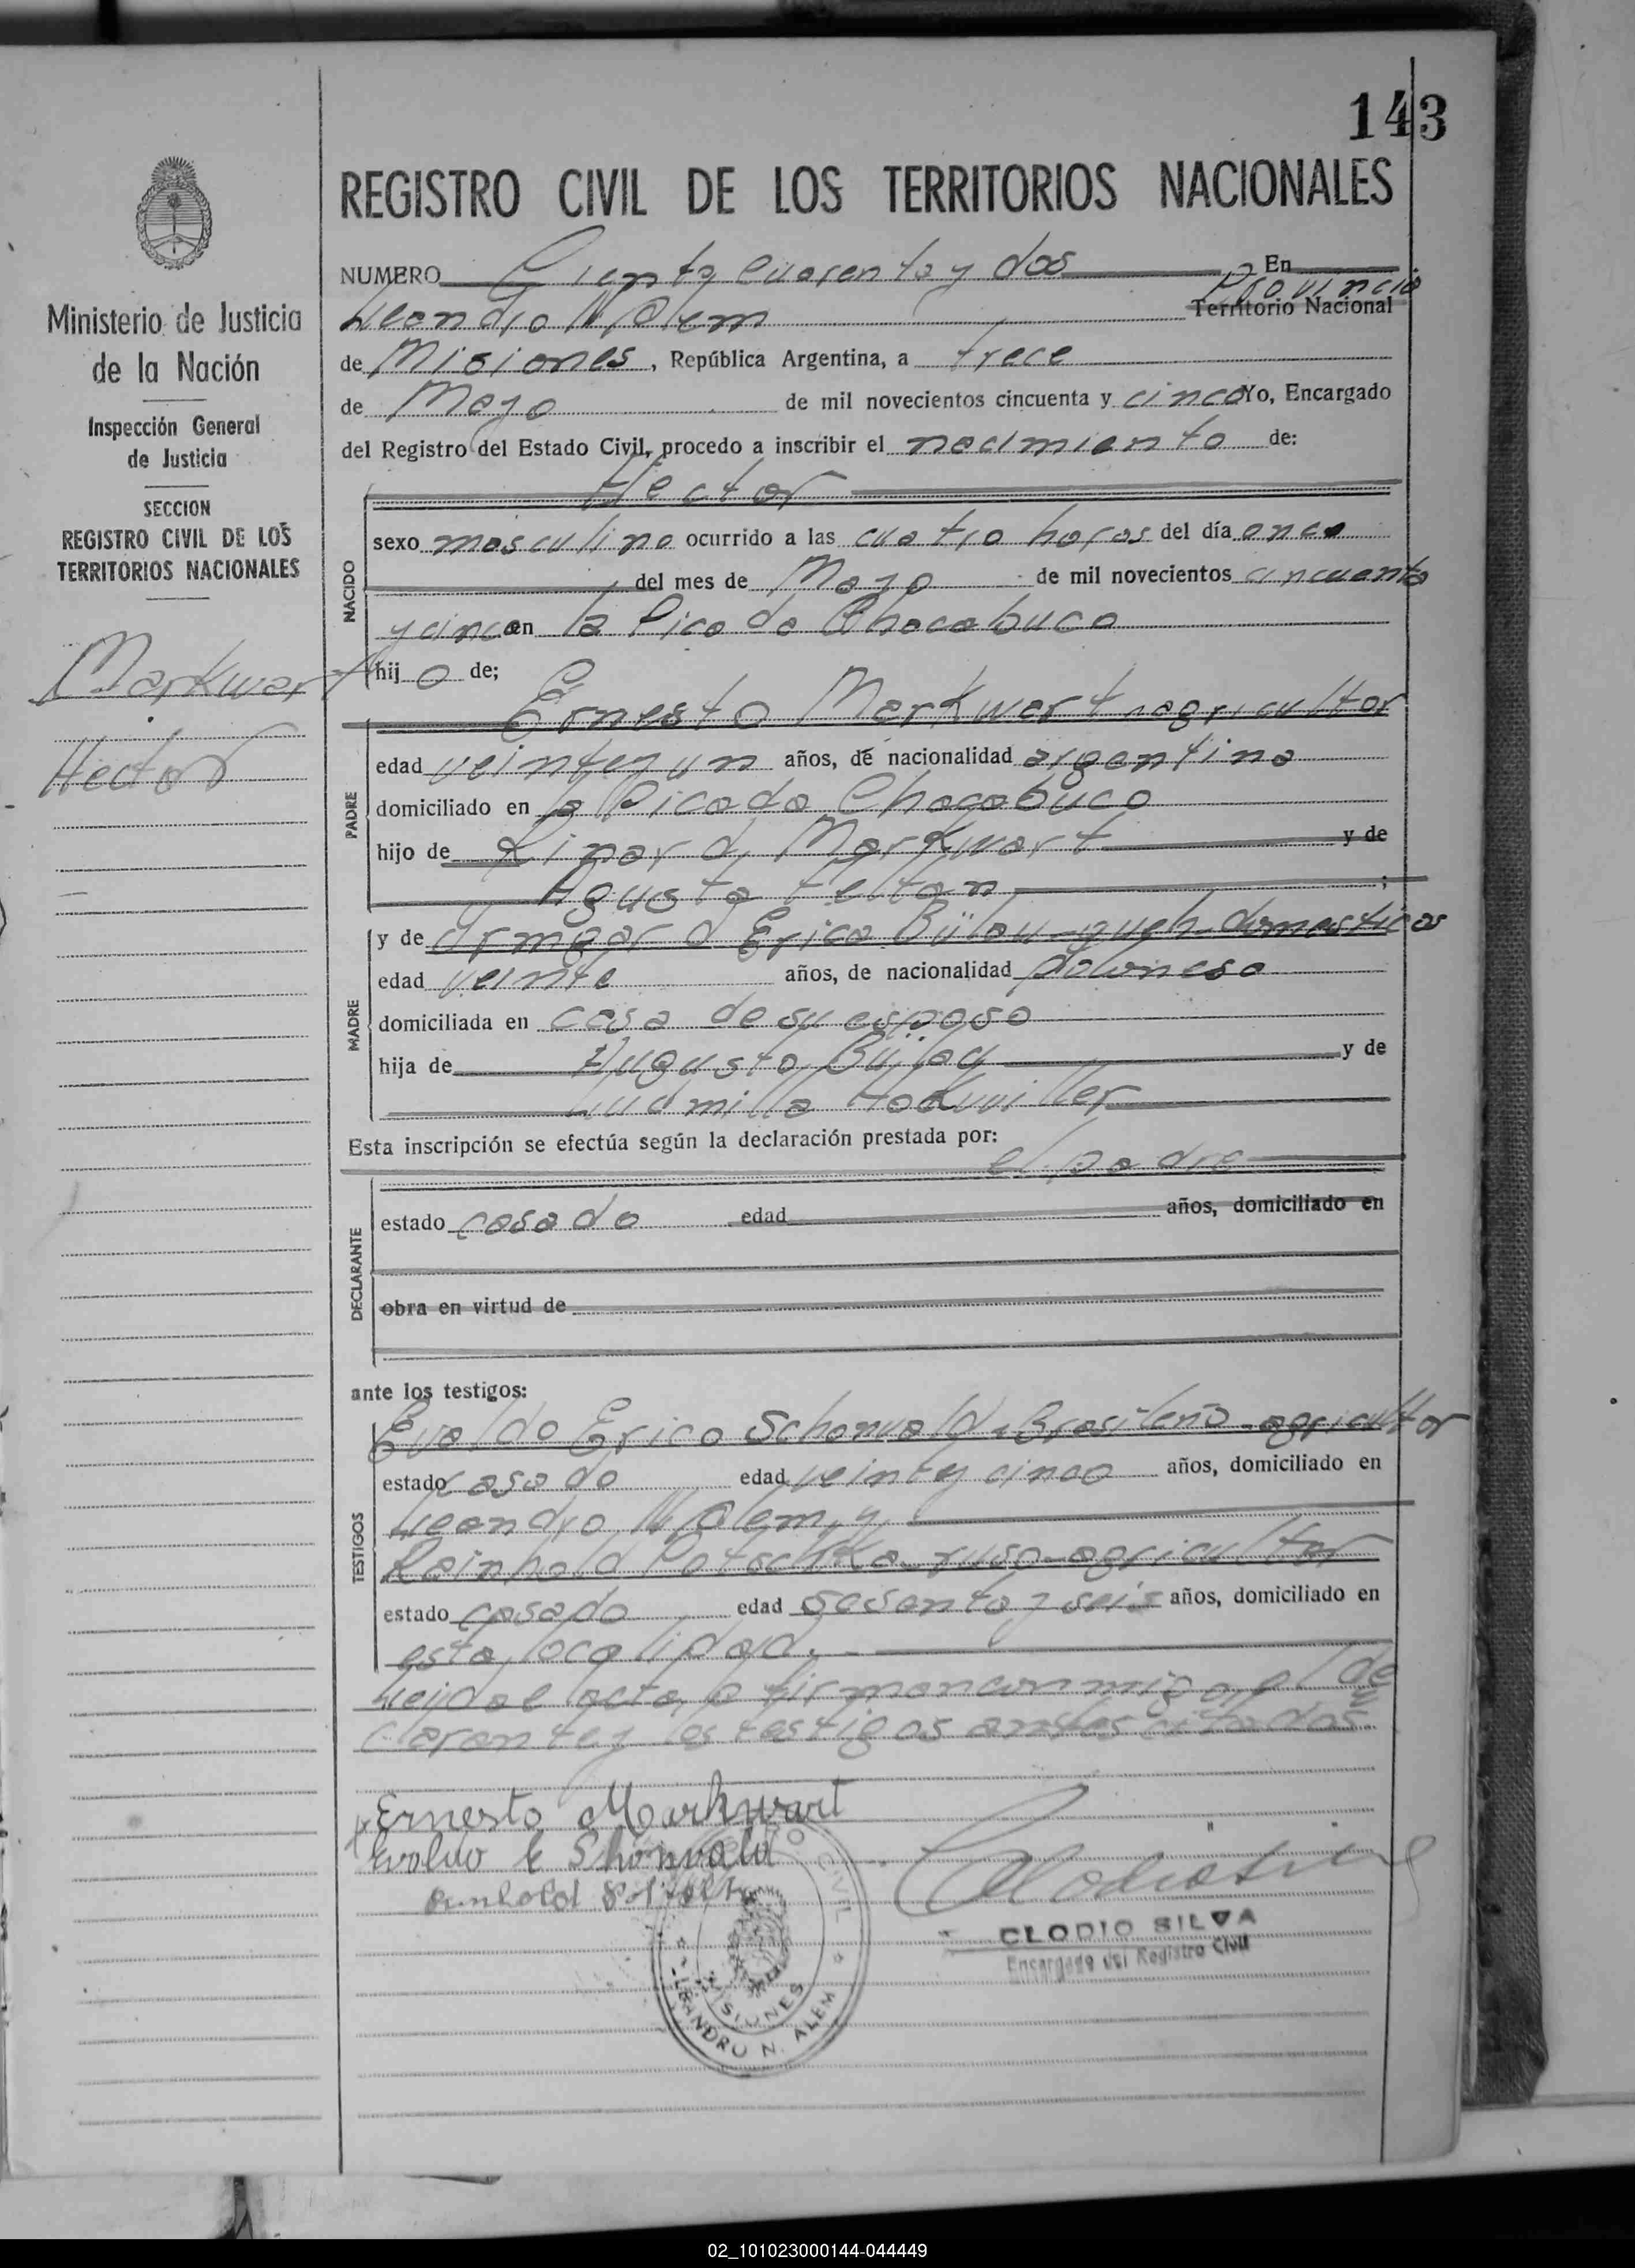 143
REGISTRO CIVIL DE LOS TERRITORIOS NACIONALES
NUMERO Ciento cuarenta y dos En
Leandro N Alem Provincia
Territorio Nacional
de Misiones, República Argentina, a trece
de Mayo de mil novecientos cincuenta y cinco Yo, Encargado
del Registro del Estado Civil, procedo a inscribir el nacimiento de:
Hector
NACIDO
sexo masculino ocurrido a las cuatro horas del día once
del mes de Mayo de mil novecientos cincuenta
y cinco en la Picada Chacabuco
hijo de;
PADRE
Ernesto Markwart agricultor
edad veinteyun años, de nacionalidad argentina
domiciliado en la Picada Chacabuco
hijo de Markwart y de
Agusta
MADRE
y de Erica Bülow domesticos
edad veinte años, de nacionalidad polonesa
domiciliada en casa de su esposo
hija de Augusto Bülow y de
Ludmilla
Esta inscripción se efectúa según la declaración prestada por:
el padre
DECLARANTE
estado casado edad años, domiciliado en
obra en virtud de
ante los testigos:
TESTIGOS
Evaldo Erico Schonwald - Brasileño - agricultor
estado casado edad veinty cinco años, domiciliado en
Leandro N Alem, y
Reinhold ruso - agricultor
estado casado edad sesenta y seis años, domiciliado en
esta localidad.
Leida el acta, firman conmigo, el de
clarante y los testigos antes citados.
Ernesto Markwart
Evaldo E Shonwald
CLODIO SILVA
Encargado del Registro Civil
CIVIL
MISIONES
LEANDRO N. ALEM
Ministerio de Justicia
de la Nación
Inspección General
de Justicia
SECCION
REGISTRO CIVIL DE LOS
TERRITORIOS NACIONALES
Markwart
Hector
02_101023000144-044449